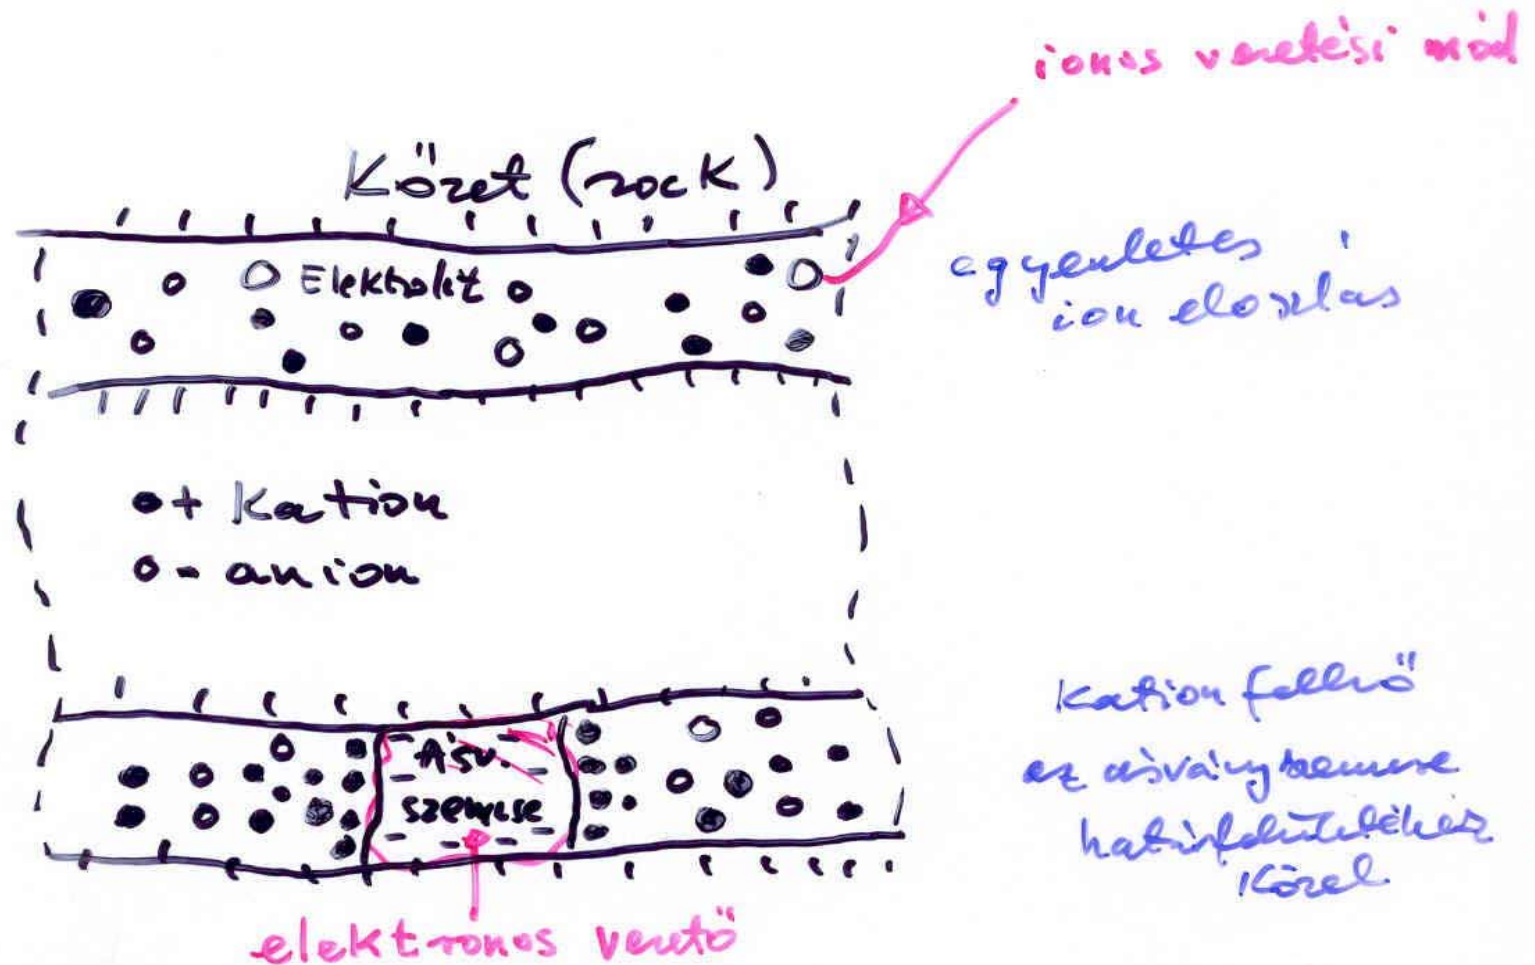 ionos vezetési mód
Kőzet (rock)
Elektrolit
egyenletes
ion eloszlás
+ Kation
- anion
Kation felhő
az ásványszemcse
határfelületéhez
Közel
Ásv.
szemcse
elektronos vezető